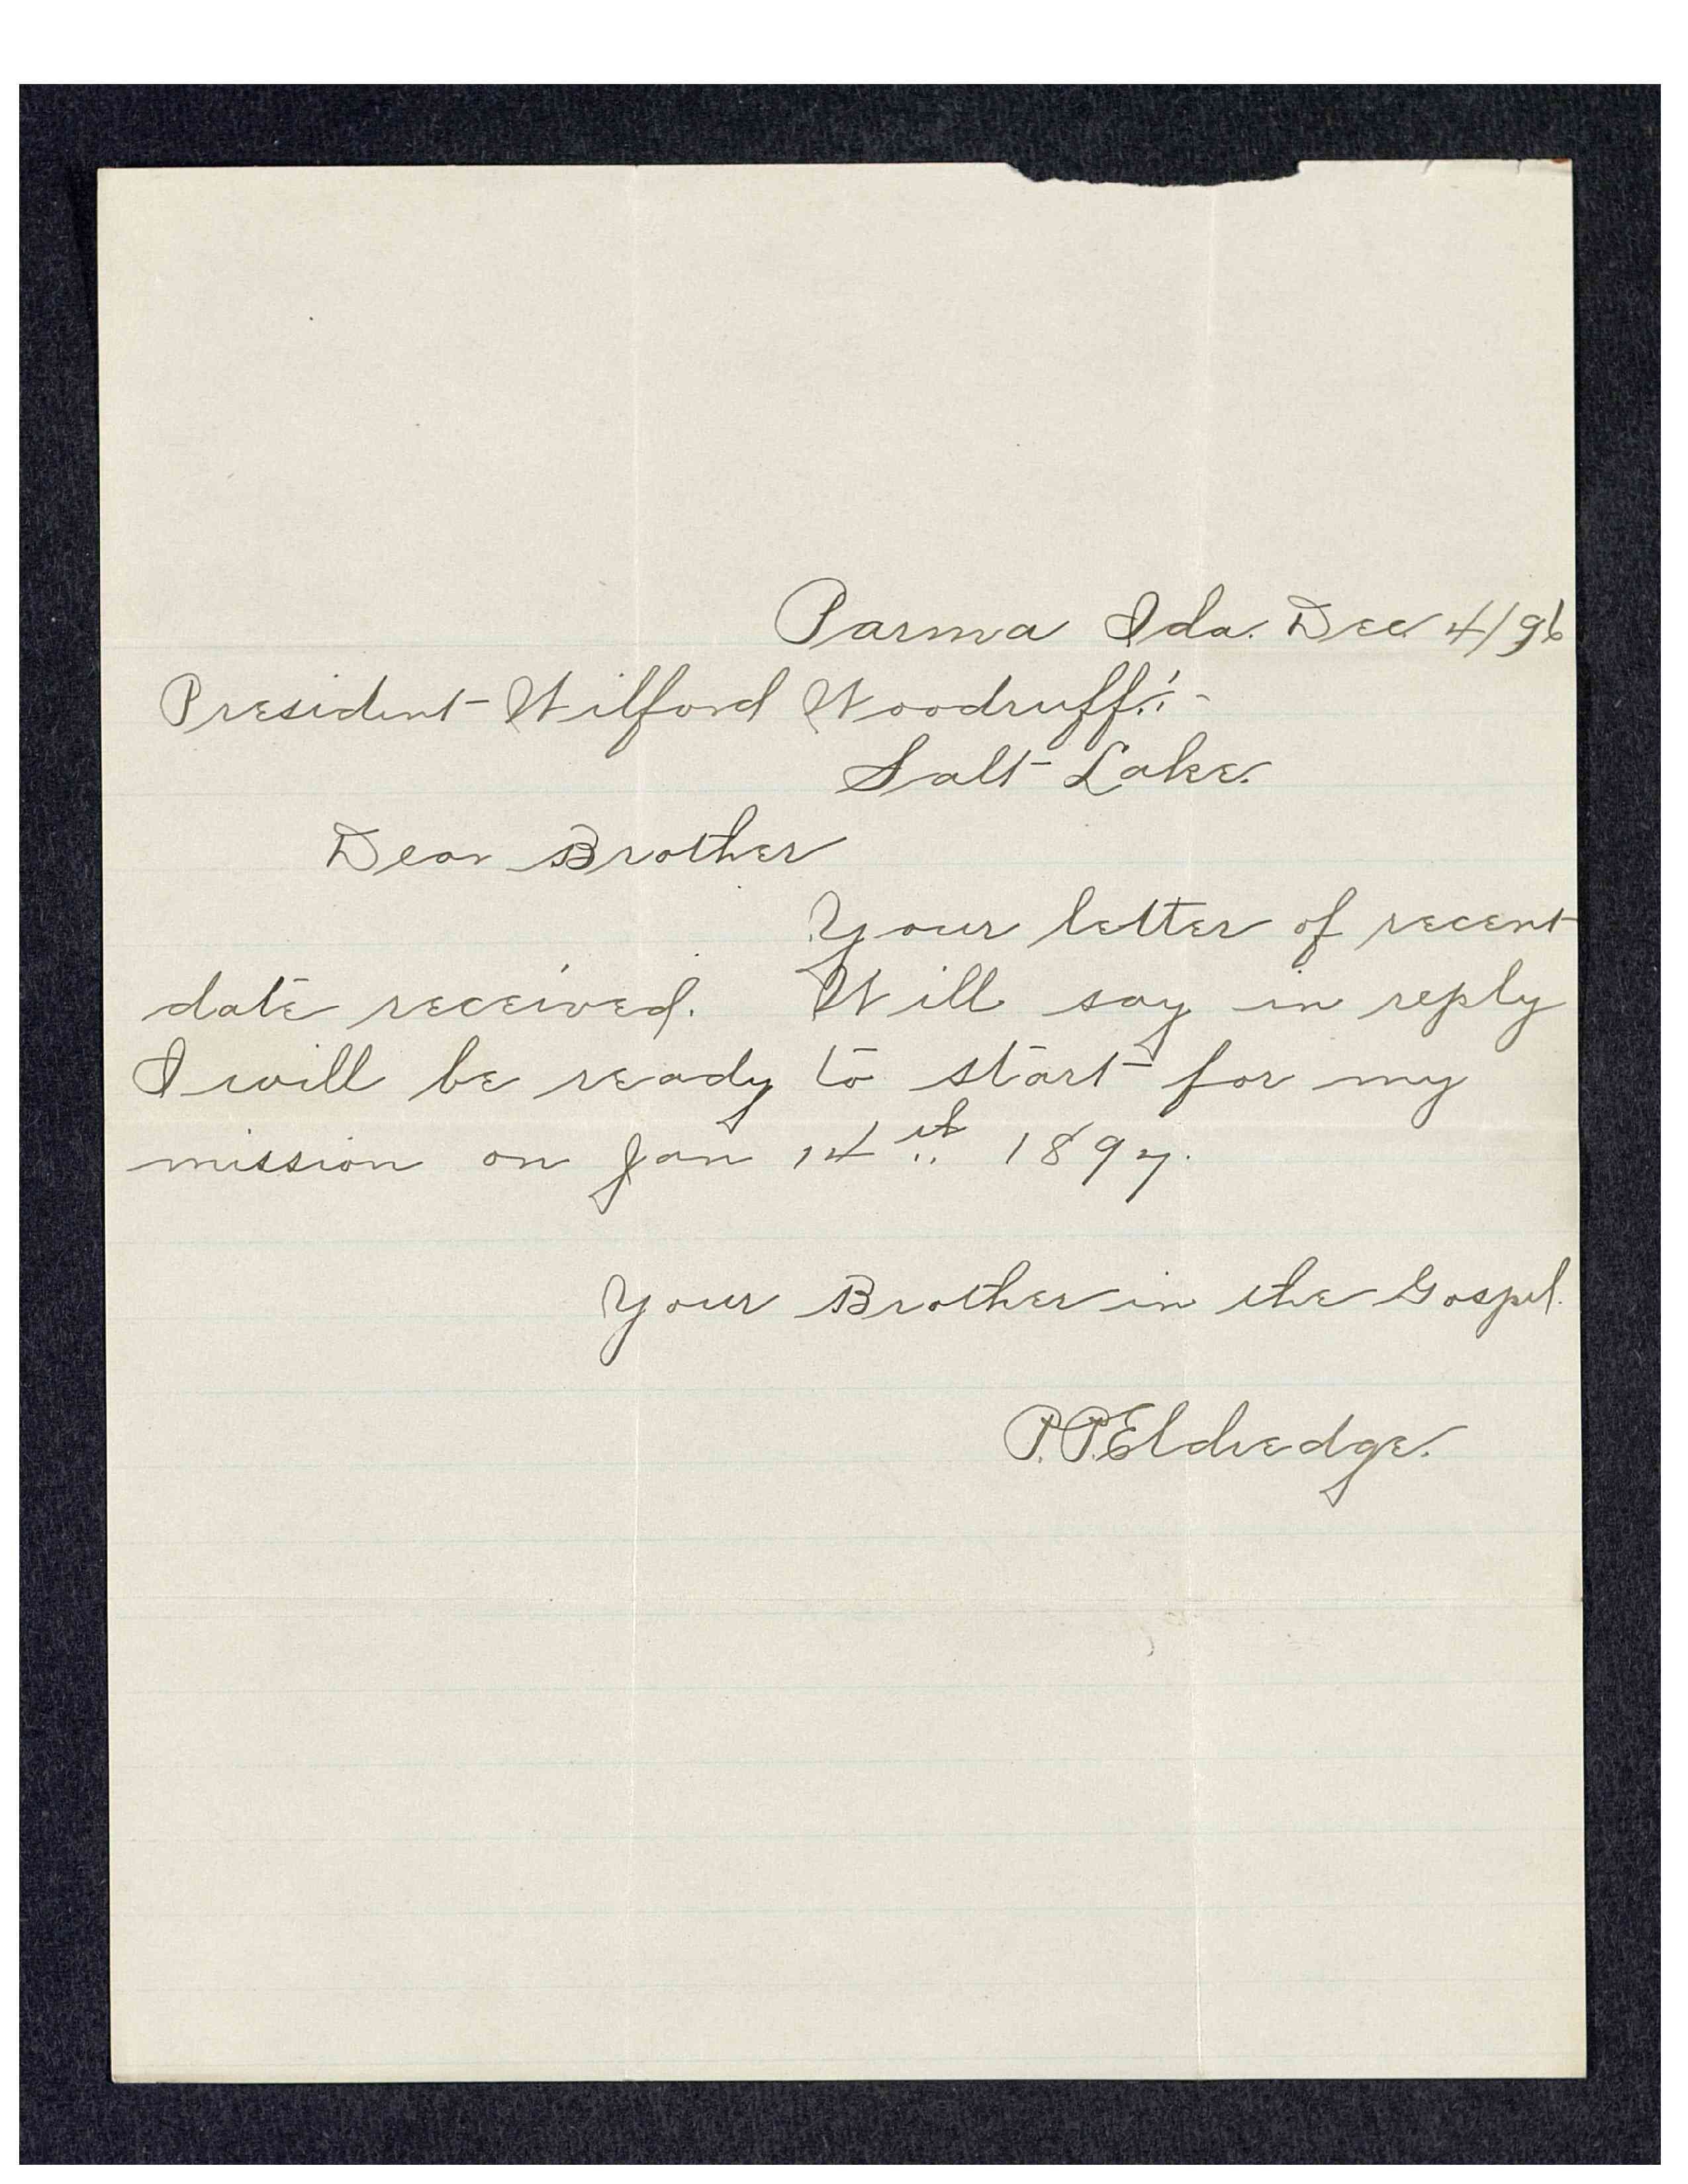 Parma Ida. Dec 4/96
President Wilford Woodruff:-
Salt Lake.
Dear Brother
Your letter of recent
date received. Will say in reply
I will be ready to start for my
mission on Jan 14th 1897.
Your Brother in the Gospel.
P.P. Eldredge.